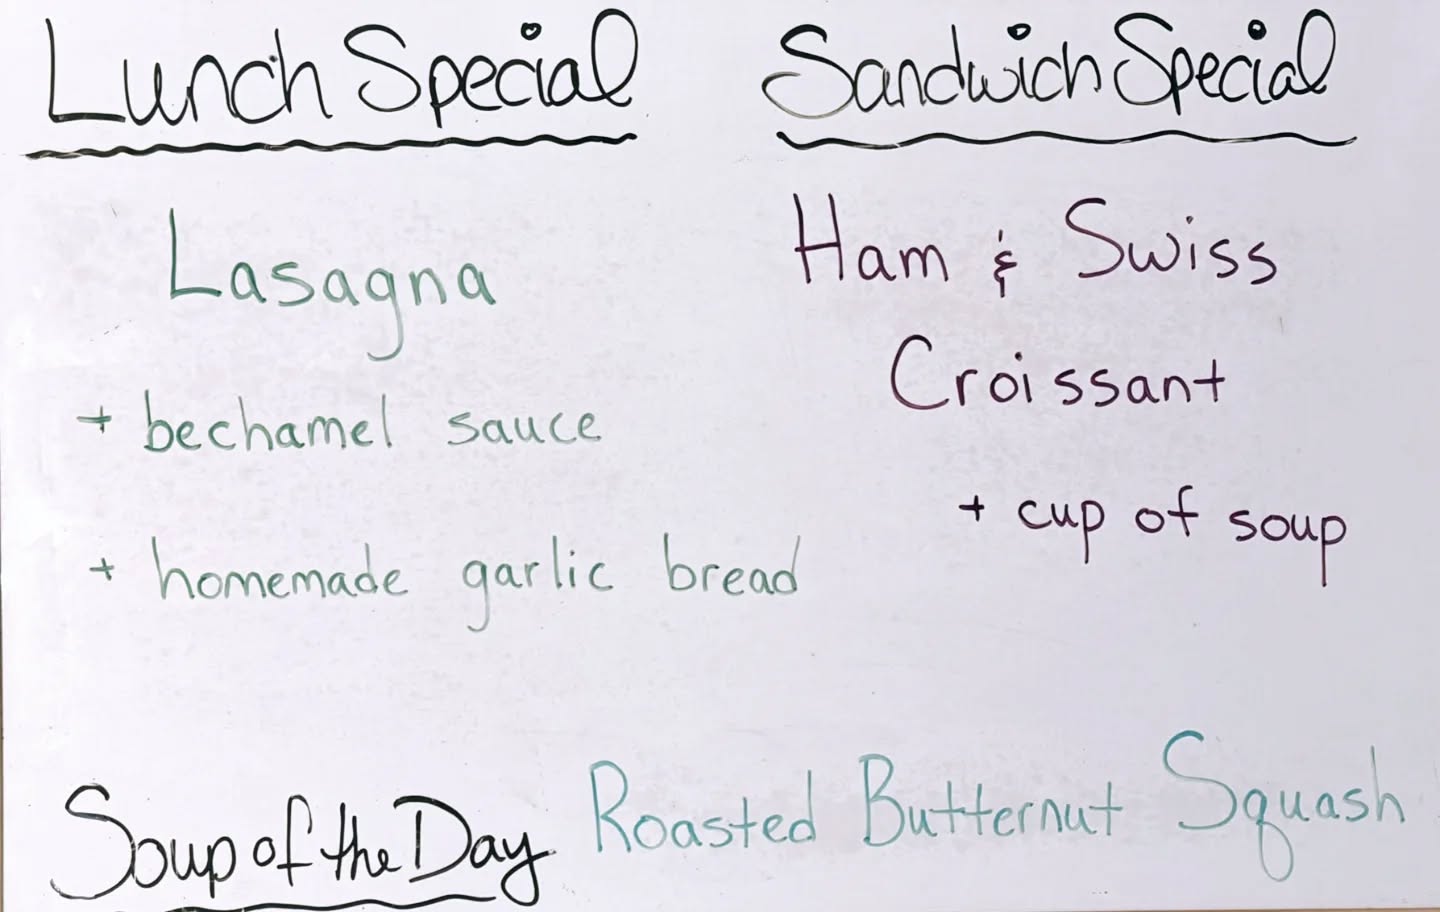 Lunch Special
Lasagna
+ bechamel sauce
+ homemade garlic bread
Sandwich Special
Ham & Swiss
Croissant
+ cup of soup
Soup of the Day Roasted Butternut Squash